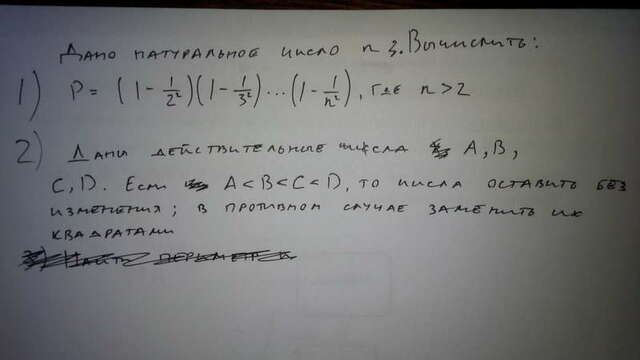 Дано натуральное число n. Вычислить:
1) P = (1 - 1/2²)(1 - 1/3²)...(1 - 1/n²), где n > 2
2) Даны действительные числа A, B,
C, D. Если A < B < C < D, то числа оставить без
изменения; в противном случае заменить их
квадратами